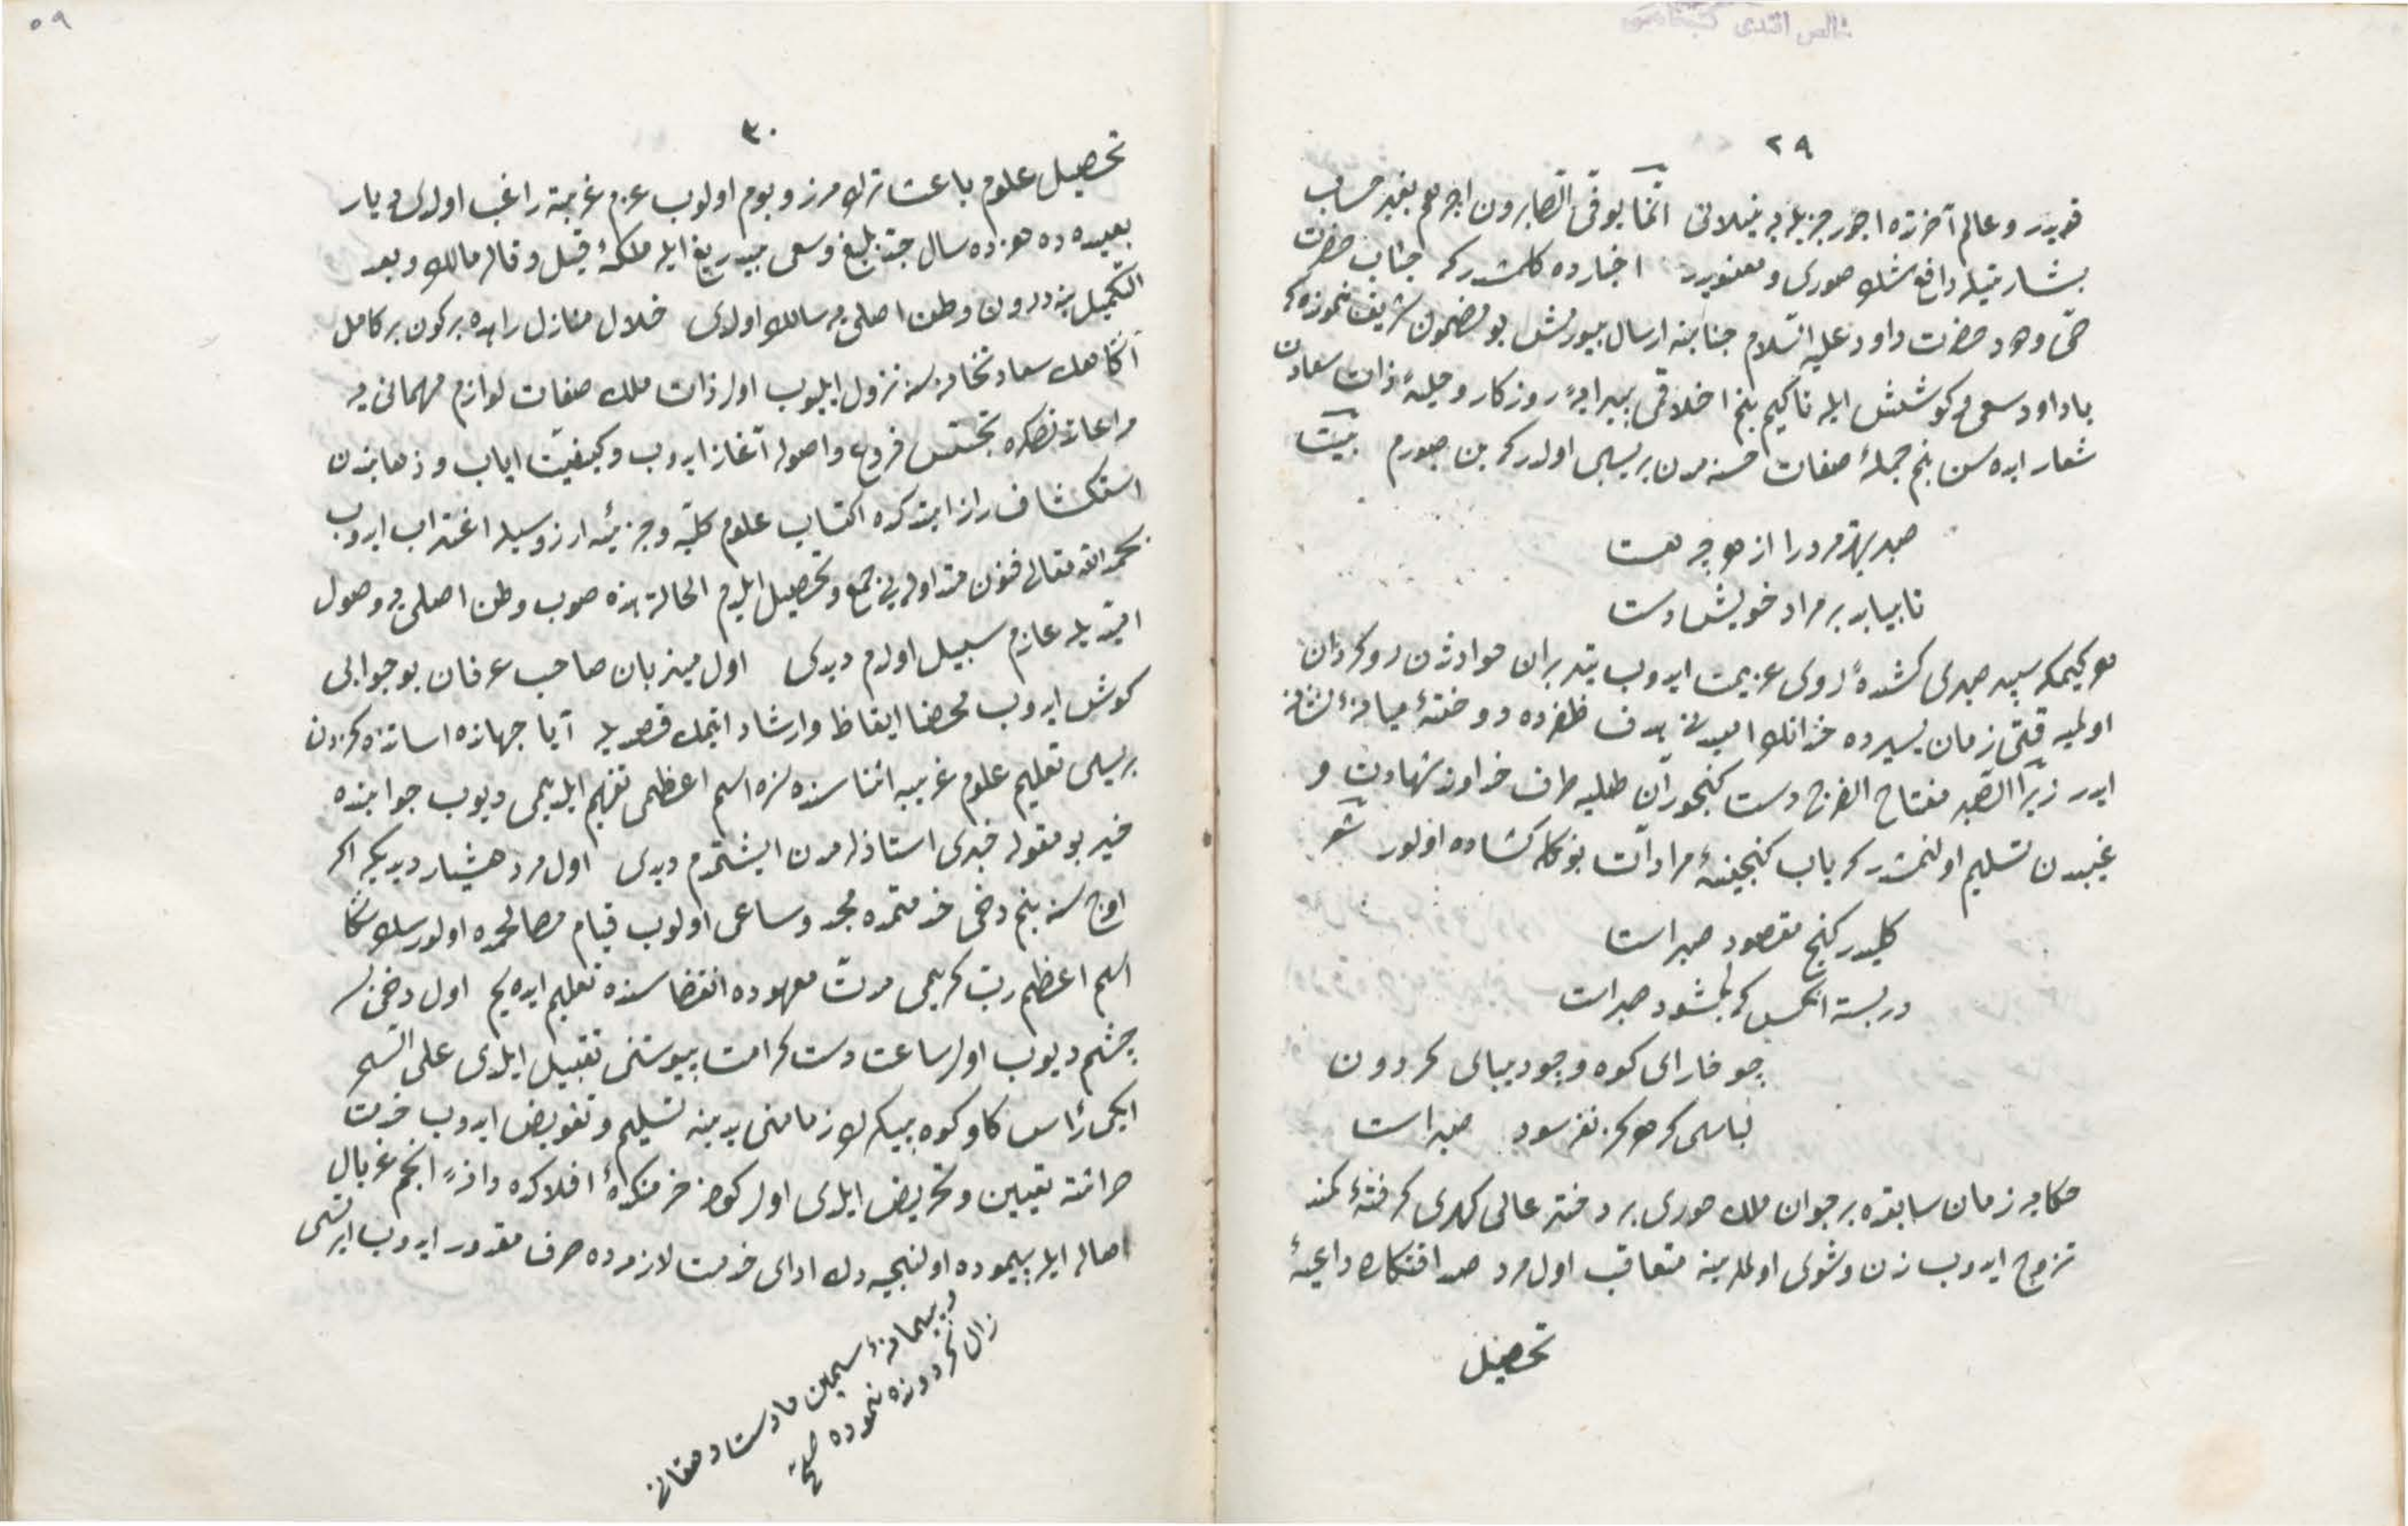 خالص افندی كتبخانه‌سی
٢٩
قویدر و عالم آخرتده اجور جزیله یه نیلانی انما یوفی الصابرون اجرهم بغیر حساب
بشارتیله دافع شك صوری و معنویدر اخبارده كلمشدر كه جناب حضرت
حی ودود حضرت داود علیه السلام جنابنه ارسال بیورمش بو مضمون شریف نموزه كه
یاداود سعی و كوشش ایله تاكیم بنم اخلاقمی پیرایهٔ روزكار و حیلهٔ ذات سعادت
شعار ایده سن بنم جملهٔ صفات حسنه مدن بریسی اولدر كه بن صبورم بیت
صبر بهتر مرد را از هرچه هست
تا بیابد بر مراد خویش دست
هر كیمكه سپر صبری كشیدهٔ روی عزیمت ایدوب تیر بران حوادثدن روكردان
اولمیه قتی زمان یسیرده خدانك امیدی هدف ظفرده دوختهٔ میانهٔ نشانه
ایدر زیرا الصبر مفتاح الفرج دست كنجوران طلبه طرف خداوند شهادت و
غیبدن تسلیم اولنمشدر كه باب كنجینهٔ مرادات بونكله كشاده اولور شعر
كلید در كنج مقصود صبر است
در بسته آنكس كه بكشود صبر است
چو خارای كوه وجود بیالی كردون
لباسی كه هركز نفرسود صبر است
حكایه زمان سابقده بر جوان ملك صوری بر دختر عالی كهری كرفتهٔ كمند
تزوج ایدوب زن و شوی اولملرینه متعاقب اول مرد صد افتكاره داعیهٔ
تحصیل
٥٩
٣٠
تحصیل علوم باعث ترك مرز و بوم اولوب عزم غربته راغب اولدی دیار
بعیده ده اوزده سال جد بلیغ و سعی بیدریغ ایله ملكهٔ قیل و قاله مالك و بعد
التكمیل ینه درون وطن اصلی یه سالك اولدی خلال منازل راهده بر كون بر كامل
آكاهك سعادتخانه سنه نزول ایلیوب اول ذات ملك صفات لوازم مهمانی یه
مراعاتدنصكره تجسس فروع و اصوله آغاز ایدوب و كیفیت ایاب و ذهابندن
استكشاف راز ایتدكده اكتساب علوم كلیه و جزئیه ارزوسیله اغتراب ایدوب
بحمد الله تعالی فنون متداوله یی جمع و تحصیل ایلدم الحالة هذه صوب وطن اصلی یه وصول
امیدیله عازم سبیل اولدم دیدی اول میزبان صاحب عرفان بو جوابی
كوش ایدوب محضا ایقاظ و ارشاد ایتمك قصدیله آیا جهانده اساتذه كزدن
بریسی تعلیم علوم غریبه اثنا سنده سزه اسم اعظمی تفهیم ایلدیمی دیوب جوابنده
خیر بو مقوله خبری استاذلرمدن ایشتمدم دیدی اول مرد هشیار دیدیكه اكر
اوچ سنه بنم دخی خدمتمده مجد و ساعی اولوب قیام مصالحمده اولورسك سكا
اسم اعظم رب كریمی مدت معهوده انقضا سنده تعلیم ایده یم اول دخی بر
چشم دیوب اول ساعت دست كرامت پیوستنی تقبیل ایلدی علی السحر
ایكی رأس كاو كوه پیكرك زمامنی یدینه تسلیم و تفویض ایدوب خدمت
حراثته تعیین و تحریض ایلدی اول كون خرمنكاهٔ افلاكده دانهٔ انجم غربال
اصال ایله پیموده اولنجیه دك ادای خدمت لازمه ده صرف مقدور ایدوب ایرتسی
و پیمانهٔ سیمین ماه دست دهقانی
زال كردونده نموده صح